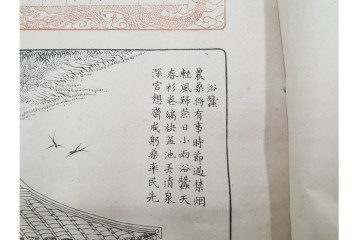 浴蠶
農桑將有事時節過禁烟
輕風歸燕日小雨浴蠶天
春衫卷縞袂盆池弄清泉
深宮想齋戒躬桑率民先